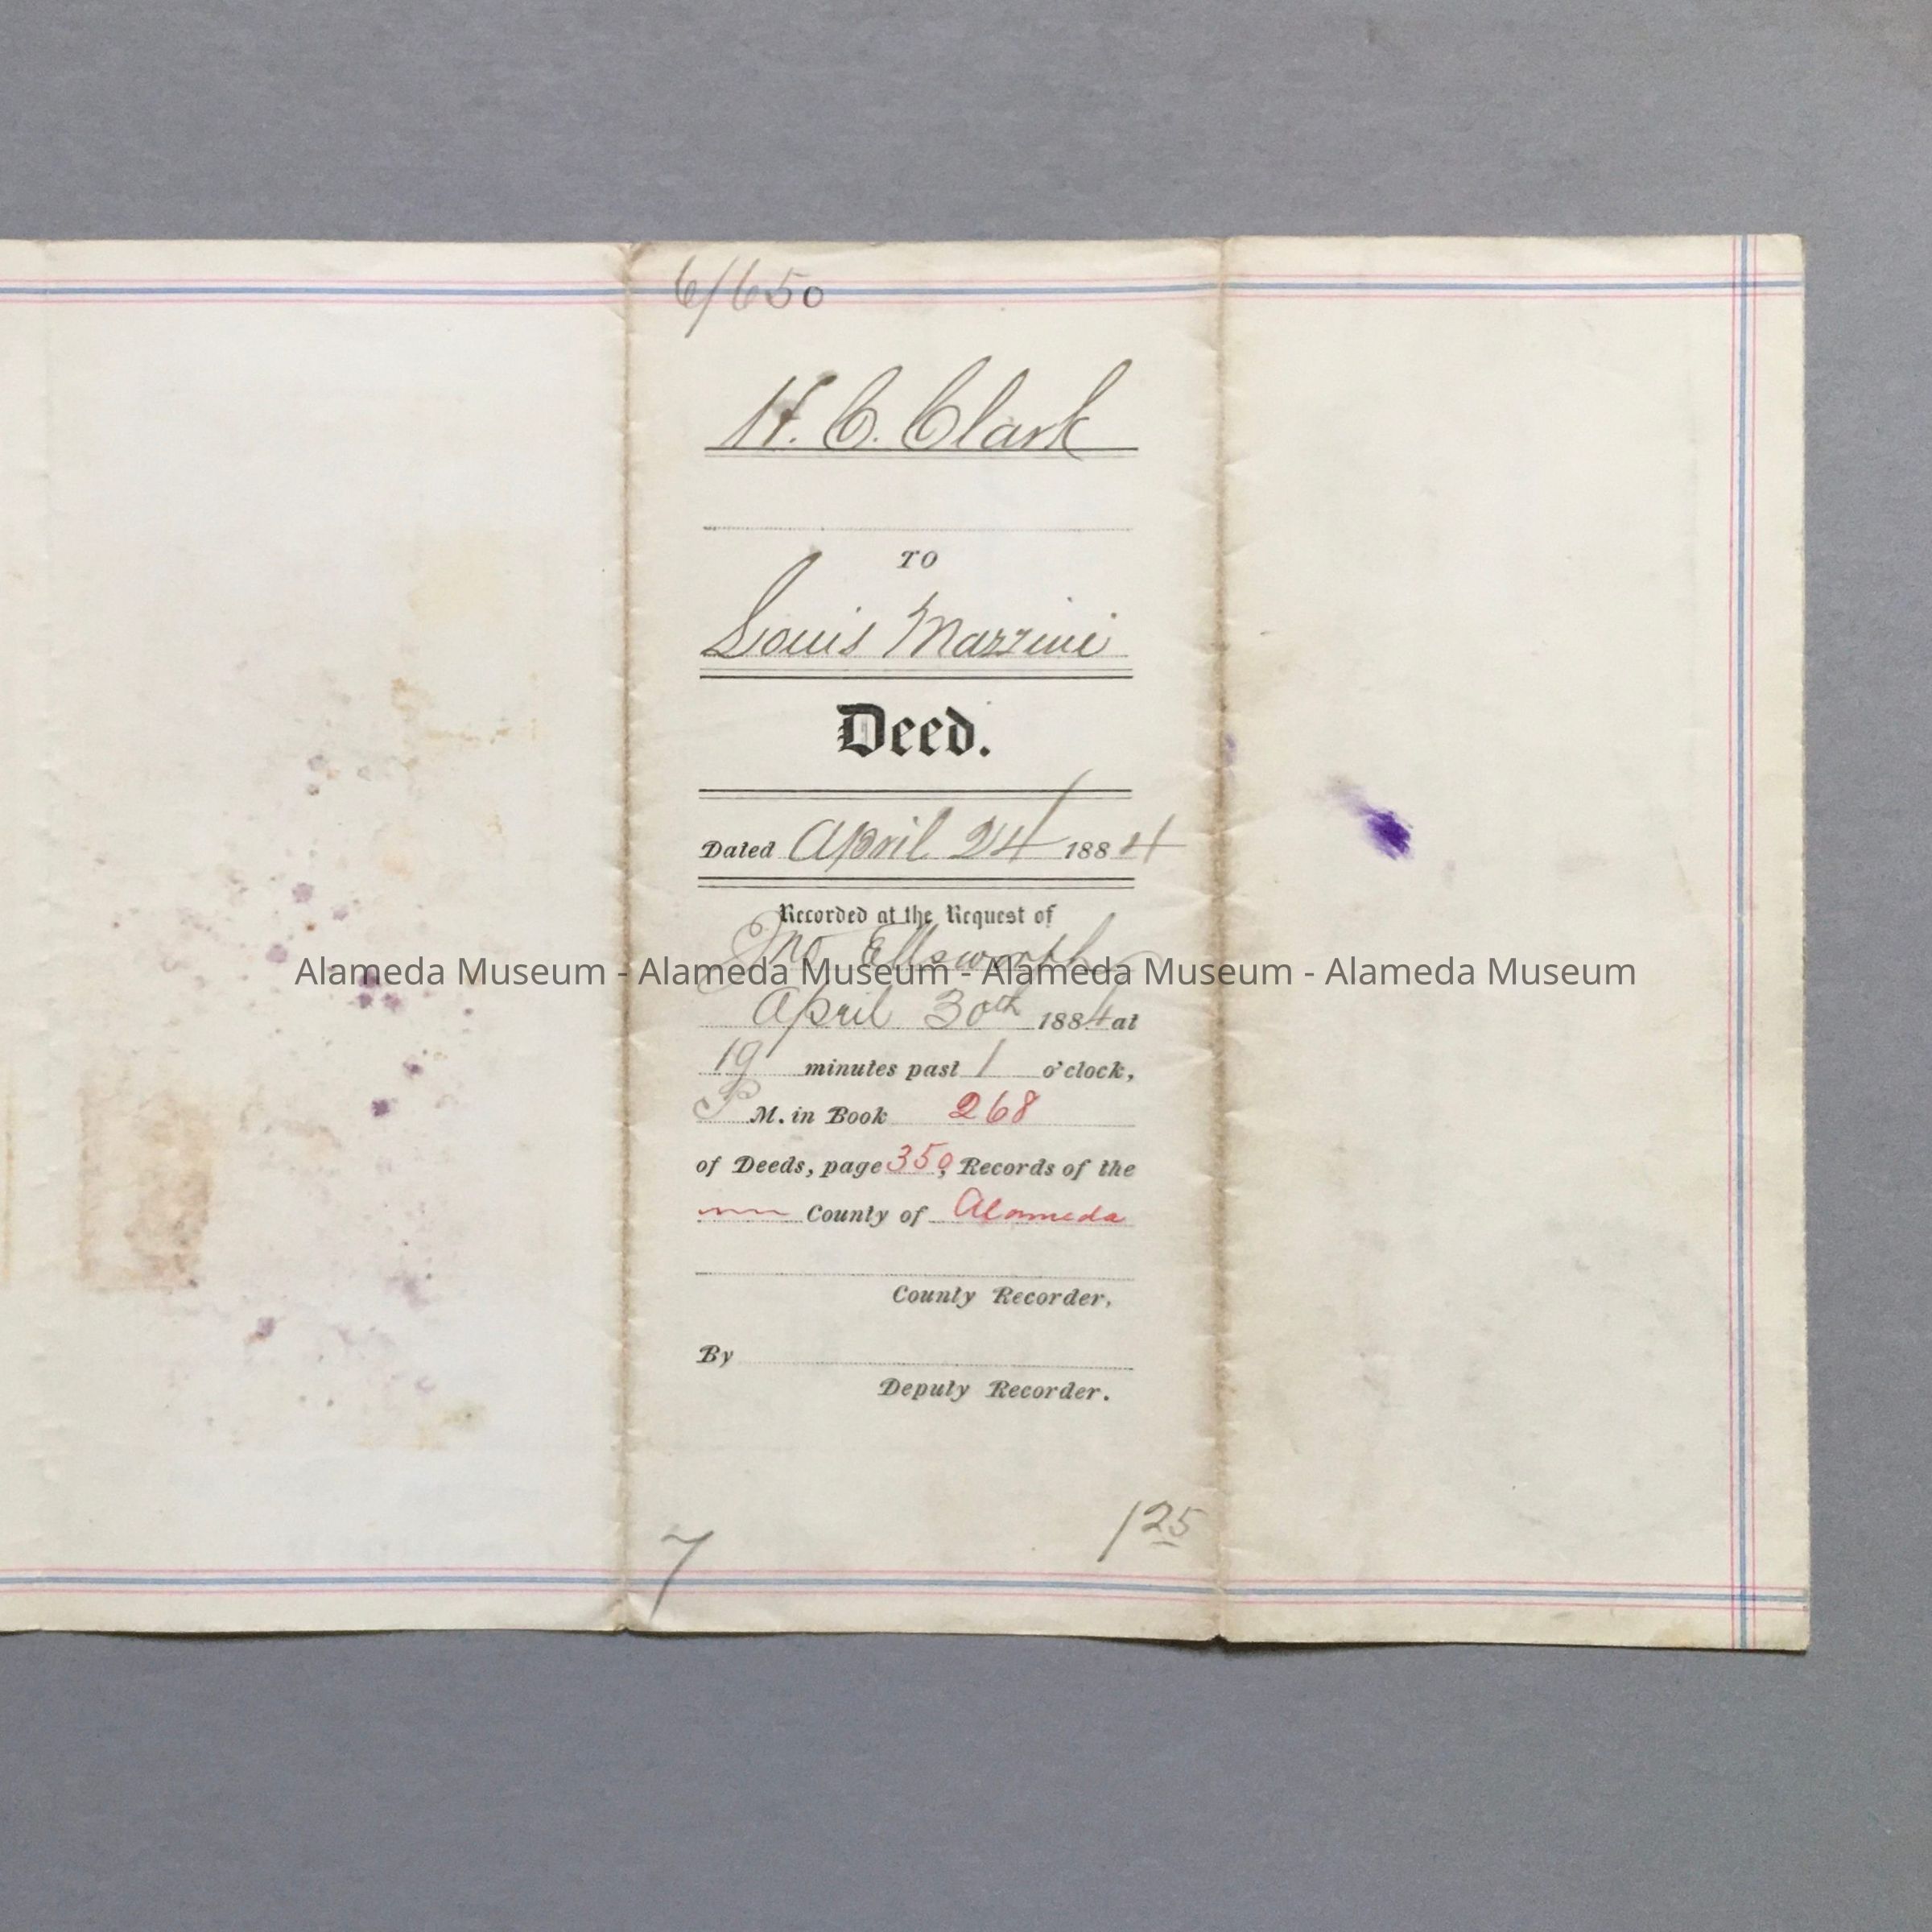 6/650
H. C. Clark
TO
Louis Mazzini
Deed.
Dated April 24 1884
Recorded at the Request of
Jno Ellsworth
Alameda Museum - Alameda Museum - Alameda Museum - Alameda Museum
April 30th 1884 at
19 minutes past 1 o'clock,
P M. in Book 268
of Deeds, page 350, Records of the
County of Alameda
County Recorder,
By
Deputy Recorder.
125
7